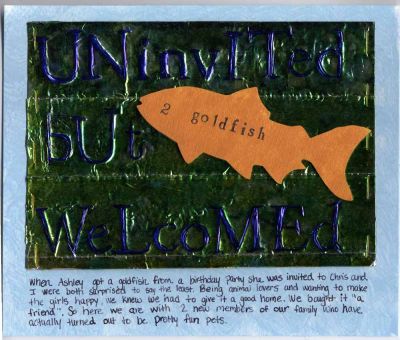 UNinvITed
2 goldfish
bUt
WeLcoMEd
When Ashley got a goldfish from a birthday party she was invited to Chris and
I were both surprised to say the least. Being animal lovers and wanting to make
the girls happy, we knew we had to give it a good home. We bought it "a
friend". So here we are with 2 new members of our family who have
actually turned out to be pretty fun pets.